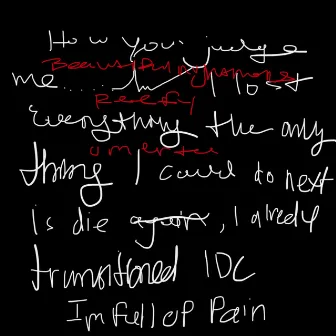 How you judge
Beautiful nightmare
me...... I lost
Reality
Everything the only
thing I could do next
is die again, I already
transitioned IDC
Im full of Pain